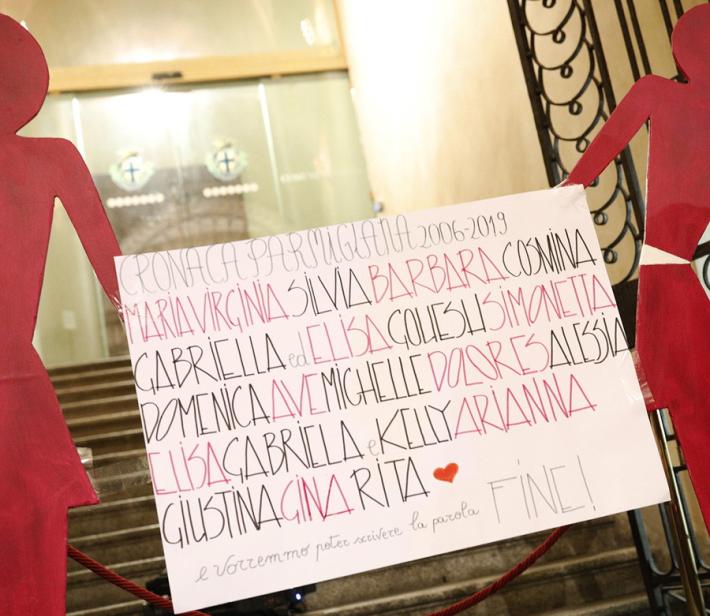 CRONACA PARMIGIANA 2006-2019
MARIAVIRGINIA SILVIA BARBARA COSMINA
GABRIELLA ed ELISA COLIESLI SIMONETTA
DOMENICA AVE MICHELLE DOLORES ALESSIA
ELISA GABRIELA e KELLY ARIANNA
GIUSTINA GINA RITA
e vorremmo poter scrivere la parola FINE!